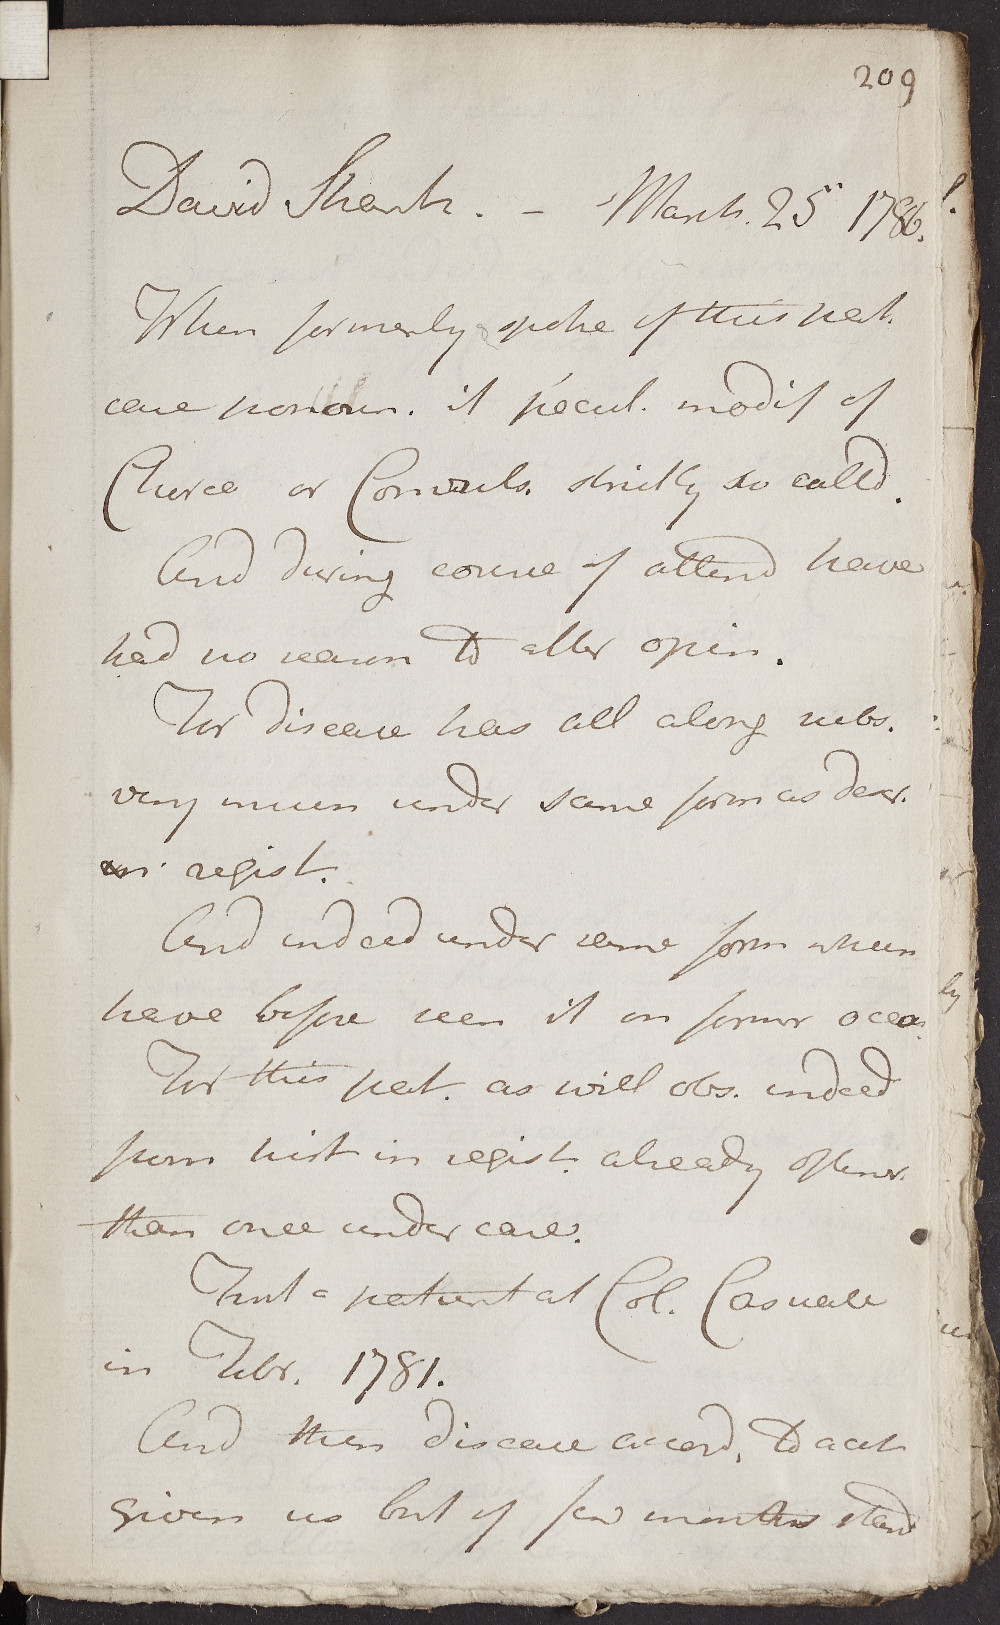 209
David Shenk. - March. 25 1786.
When formerly spoke of this pat.
case pronoun. it pecul. modif of
Chorea or Convuls. strictly so called.
And during course of attend have
had no reason to alter opin.
For disease has all along subs.
very much under same form as descr.
in regist.
And indeed under same form when
have before seen it on former occas.
For this pat. as will obs. indeed
from hist in regist. already oftener
than once under care.
First a patient at Col. Casuale
in Febr. 1781.
And then disease accord. to acct
given us but of few months stand